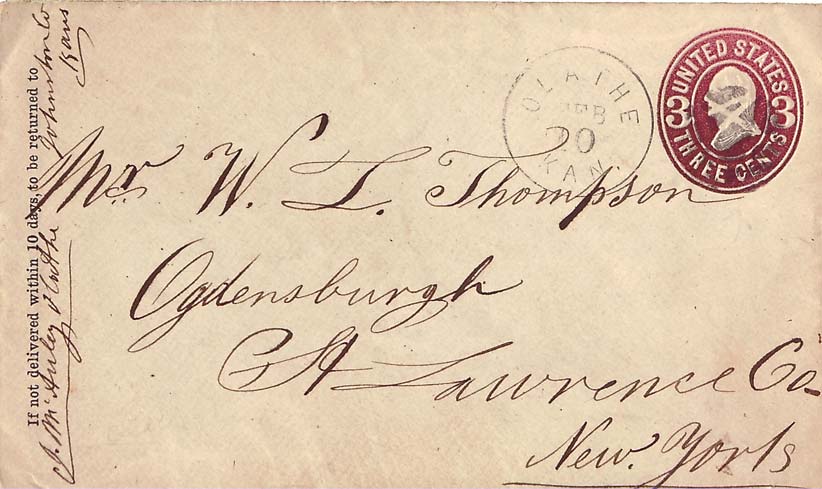 If not delivered within 10 days, to be returned to
Olathe
Johnston Co
Kans
OLATHE
FEB
20
KAN
UNITED STATES
3 3
THREE CENTS
Mr W. L. Thompson
Ogdensburgh
St Lawrence Co
New. York